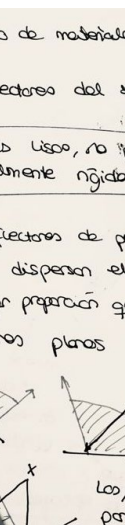 de materiale
ectores del s
LISOS, no i
lmente rígido
flectores de p
dispersan el
proporción q
planos
x
Los,
por